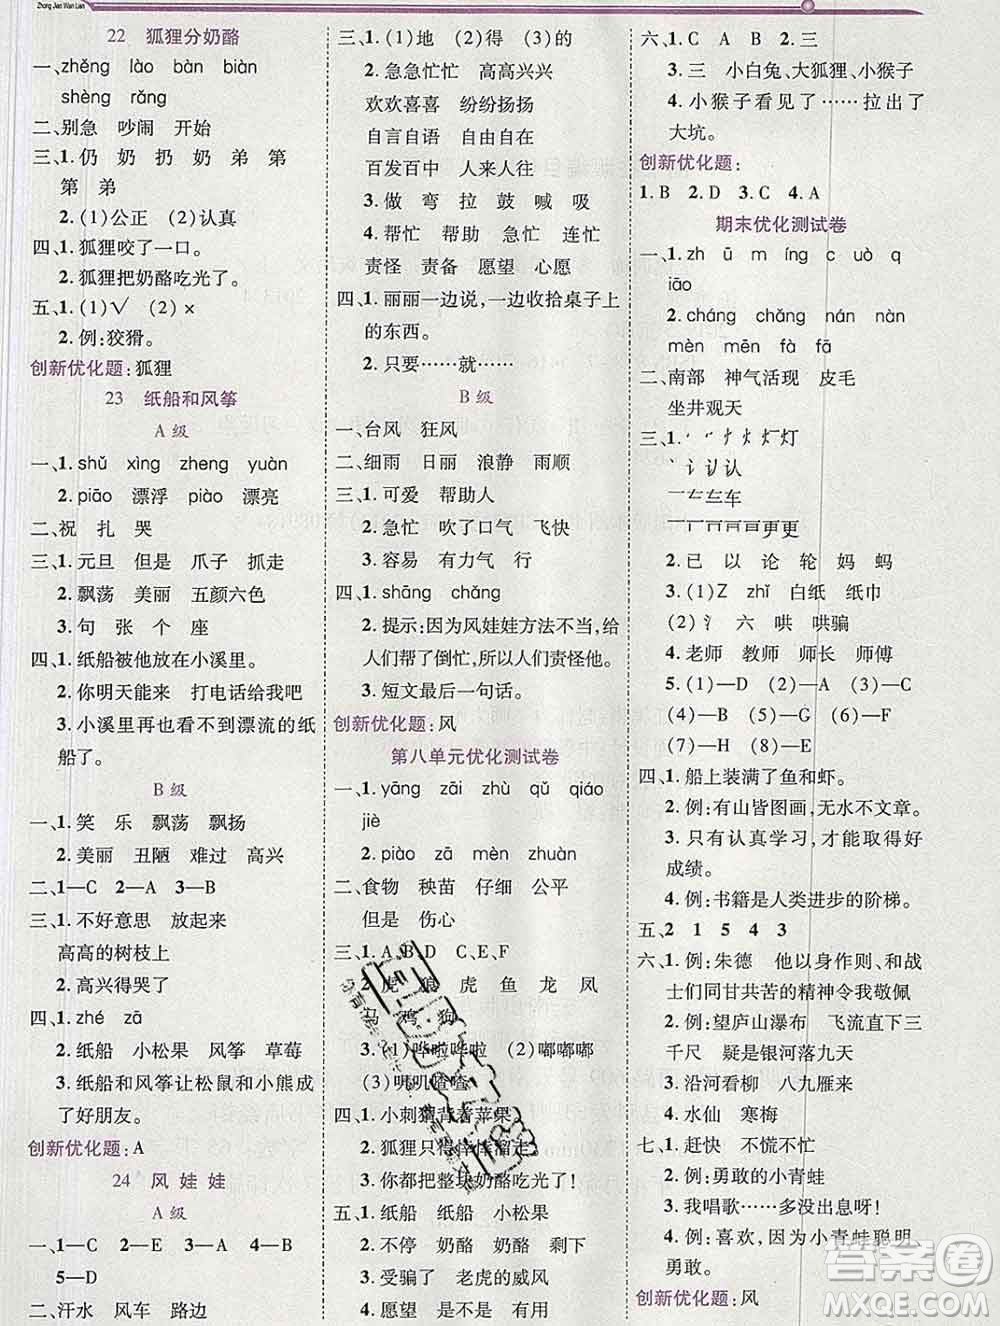 Zhong Jian Wan Lian
22 狐狸分奶酪
一、zhěng lào bàn biàn
shèng rǎng
二、别急 吵闹 开始
三、1. 仍 奶 扔 奶 弟 第
第 弟
2. (1)公正 (2)认真
四、1. 狐狸咬了一口。
2. 狐狸把奶酪吃光了。
五、1. (1)√ (2)×
2. 例:狡猾。
创新优化题:狐狸
23 纸船和风筝
A 级
一、1. shǔ xìng zheng yuàn
2. piāo 漂浮 piào 漂亮
二、祝 扎 哭
三、1. 元旦 但是 爪子 抓走
2. 飘荡 美丽 五颜六色
3. 句 张 个 座
四、1. 纸船被他放在小溪里。
2. 你明天能来 打电话给我吧
3. 小溪里再也看不到漂流的纸
船了。
B 级
一、1. 笑 乐 飘荡 飘扬
2. 美丽 丑陋 难过 高兴
二、1—C 2—A 3—B
三、1. 不好意思 放起来
高高的树枝上
2. 高兴得哭了
四、1. zhé zā
2. 纸船 小松果 风筝 草莓
3. 纸船和风筝让松鼠和小熊成
了好朋友。
创新优化题:A
24 风 娃 娃
A 级
一、1—C 2—E 3—A 4—B
5—D
二、汗水 风车 路边
三、1. (1)地 (2)得 (3)的
2. 急急忙忙 高高兴兴
欢欢喜喜 纷纷扬扬
自言自语 自由自在
百发百中 人来人往
3. 做 弯 拉 鼓 喊 吸
4. 帮忙 帮助 急忙 连忙
责怪 责备 愿望 心愿
四、1. 丽丽一边说,一边收拾桌子上
的东西。
2. 只要……就……
B 级
一、台风 狂风
二、细雨 日丽 浪静 雨顺
三、1. 可爱 帮助人
2. 急忙 吹了口气 飞快
3. 容易 有力气 行
四、1. shāng chǎng
2. 提示:因为风娃娃方法不当,给
人们帮了倒忙,所以人们责怪他。
3. 短文最后一句话。
创新优化题:风
第八单元优化测试卷
一、1. yāng zāi zhù qǔ qiáo
jiè
2. piào zā mèn zhuàn
二、食物 秧苗 仔细 公平
但是 伤心
三、1. A、B、D C、E、F
2. 虎 狼 虎 鱼 龙 凤
马 鸡 狗
3. (1)哗啦哗啦 (2)嘟嘟嘟
(3)叽叽喳喳
四、1. 小刺猬背着苹果。
2. 狐狸只得悻悻溜走。
3. 你都把整块奶酪吃光了。
五、1. 纸船 纸船 小松果
2. 不停 奶酪 奶酪 剩下
3. 受骗了 老虎的威风
4. 愿望 是 不是 有用
六、1. C A B 2. 三
3. 三 小白兔、大狐狸、小猴子
4. 小猴子看见了……拉出了
大坑。
创新优化题:
1. B 2. D 3. C 4. A
期末优化测试卷
一、1. zh ū m íng c uò q
iāo
2. cháng chǎng nán nàn
mèn mēn fà fā
二、南部 神气活现 皮毛
坐井观天
三、1. 灯
认
车
更
2. 已 以 论 轮 妈 蚂
3. (1)Z zhǐ 白纸 纸巾
(2)氵 六 哄 哄骗
4. 老师 教师 师长 师傅
5. (1)—D (2)—A (3)—C
(4)—B (5)—G (6)—F
(7)—H (8)—E
四、1. 船上装满了鱼和虾。
2. 例:有山皆图画,无水不文章。
3. 只有认真学习,才能取得好
成绩。
4. 例:书籍是人类进步的阶梯。
五、2 1 5 4 3
六、1. 例:朱德 他以身作则、和战
士们同甘共苦的精神令我敬佩
2. 例:望庐山瀑布 飞流直下三
千尺 疑是银河落九天
3. 沿河看柳 八九雁来
4. 水仙 寒梅
七、1. 赶快 不慌不忙
2. 例:勇敢的小青蛙
3. 我唱歌……多没出息呀!
4. 例:喜欢,因为小青蛙聪明、
勇敢。
创新优化题:风
答案圈
MXQE.COM